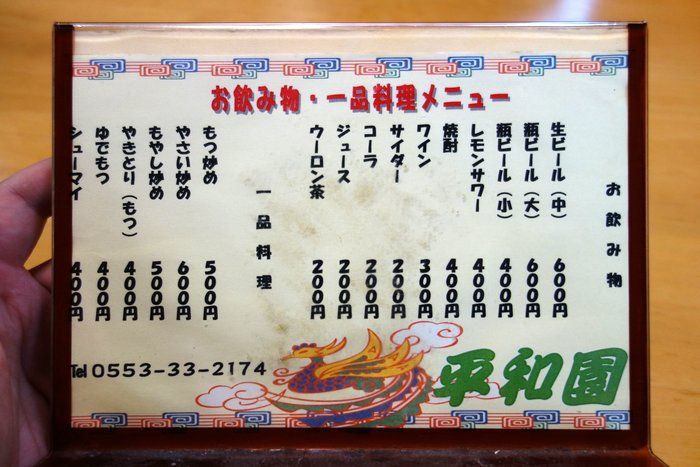 お飲み物・一品料理メニュー
お飲み物
生ビール（中） 600円
瓶ビール（大） 600円
瓶ビール（小） 400円
レモンサワー 400円
焼酎 400円
ワイン 300円
サイダー 200円
コーラ 200円
ジュース 200円
ウーロン茶 200円
一品料理
もつ炒め 500円
やさい炒め 600円
もやし炒め 500円
やきとり（もつ） 400円
ゆでもつ 400円
シューマイ 400円
Tel 0553-33-2174
平和園